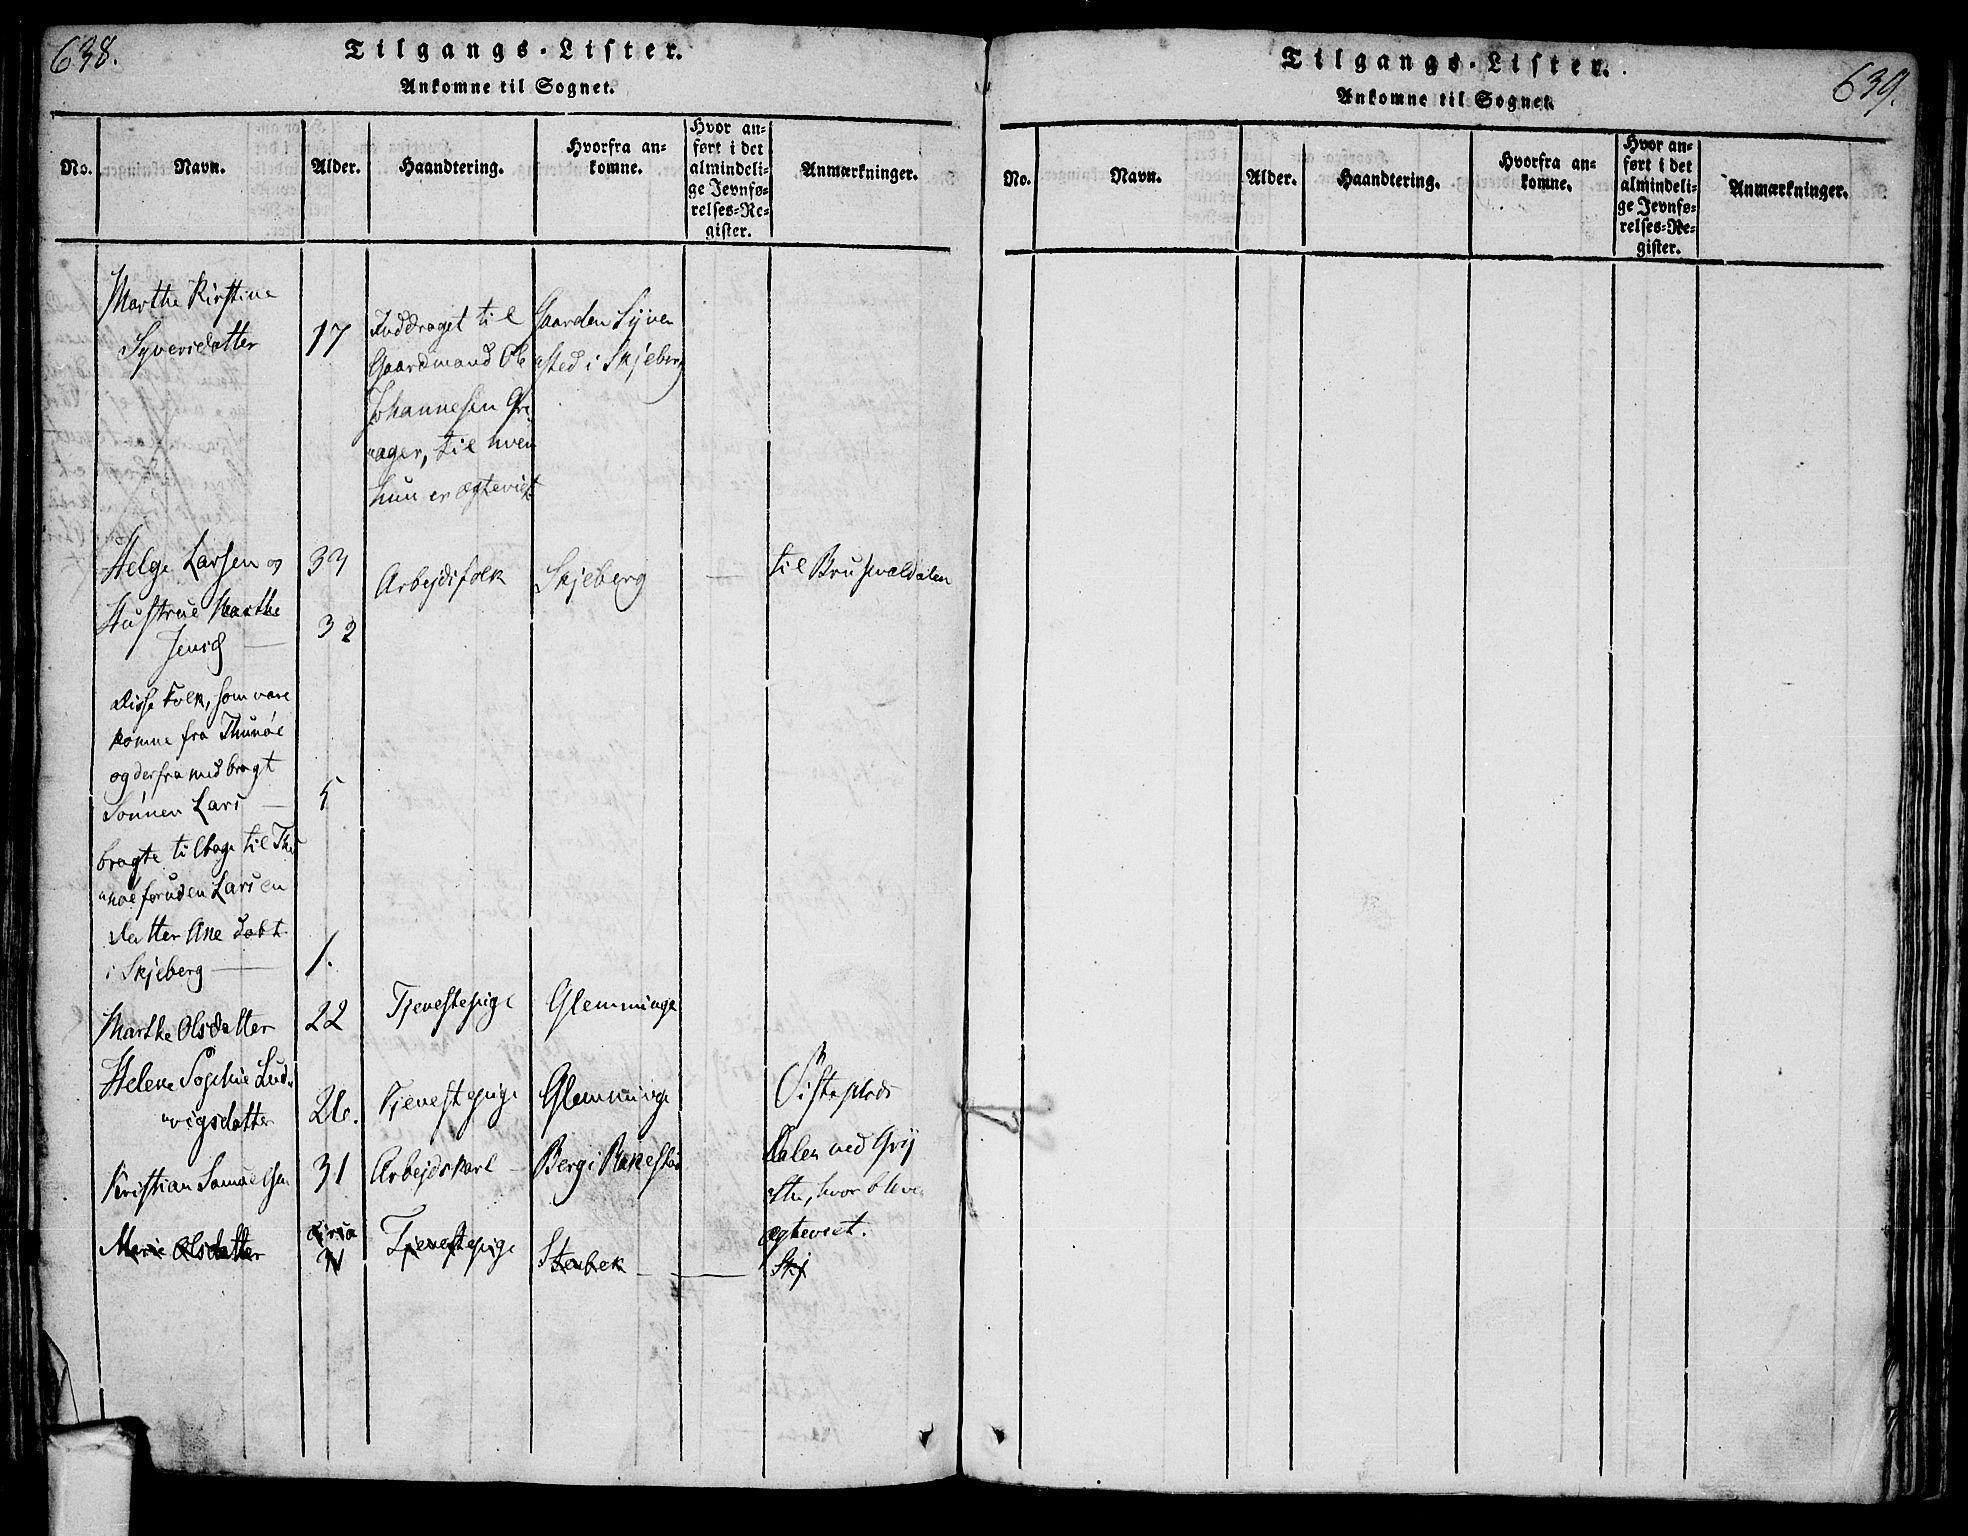 638.
Tilgangs-Lister.
Ankomne til Sognet.
No.
Navn.
Alder.
Haandtering.
Hvorfra an=
komne.
Hvor an=
ført i det
almindeli=
ge Jevnfø=
relses=Re=
gister.
Anmærkninger.
Marthe Kirstine
Syversdatter
17
Inddraget til
Gaardmand Ole
Johannesen
ager, til hvem
hun er ægteviet
Gaarden
sted i Skjeberg
Helge Larsen og
33
Arbejdsfolk
Skjeberg
—
til
Hustrue Marthe
32
Jensd —
Disse Folk, som vare
komne fra Thunøe
og derfra medbragt
Sønnen Lars —
5
bragte tilbage til Thu
"nøe foruden Lars en
datter Ane døbt
i Skjeberg —
1.
Marthe Olsdatter
22
Tjenestepige
Glemminge
Helene Sophie Lud"
"vigsdatter
26.
Tjenestepige
Glemminge
Kristian Samuelsen
31
Arbejdskarl —
Berg i Rakestad
Dalen ved Gry
"the, hvor bleve
ægteviet.
Marie Olsdatter
circa
Tjenestepige
Skj
639.
Tilgangs-Lister.
Ankomne til Sognet.
No.
Navn.
Alder.
Haandtering.
Hvorfra an=
komne.
Hvor an=
ført i det
almindeli=
ge Jevnfø=
relses=Re=
gister.
Anmærkninger.